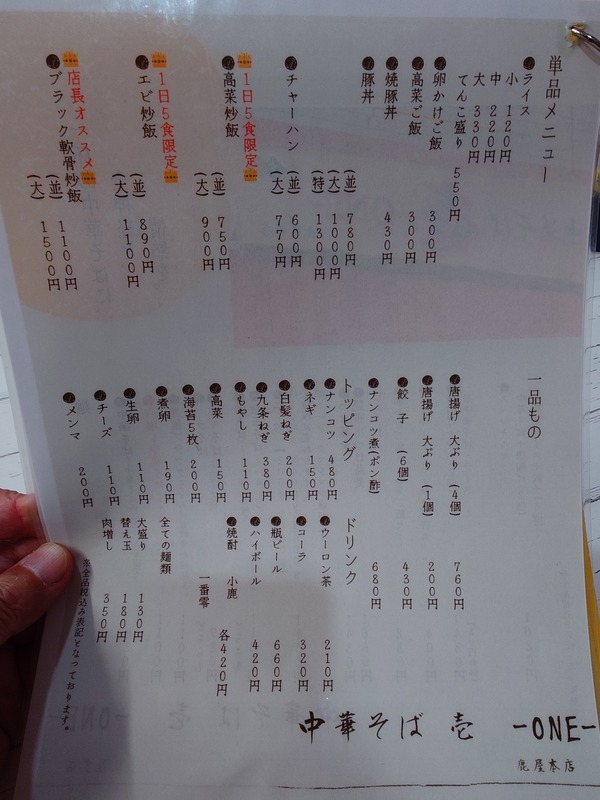 単品メニュー
ライス
小 120円
中 220円
大 330円
てんこ盛り 550円
卵かけご飯 300円
高菜ご飯 300円
焼豚丼 430円
豚丼
(並) 780円
(大) 1000円
(特) 1300円
チャーハン
(並) 600円
(大) 770円
1日5食限定
高菜炒飯
(並) 750円
(大) 900円
1日5食限定
エビ炒飯
(並) 890円
(大) 1100円
店長オススメ
ブラック軟骨炒飯
(並) 1100円
(大) 1500円
一品もの
唐揚げ 大ぶり (4個) 760円
唐揚げ 大ぶり (1個) 200円
餃子 (6個) 430円
ナンコツ煮(ポン酢) 680円
トッピング
ナンコツ 480円
ネギ 150円
白髪ねぎ 200円
九条ねぎ 380円
もやし 110円
高菜 150円
海苔5枚 200円
煮卵 190円
生卵 110円
チーズ 110円
メンマ 200円
ドリンク
ウーロン茶 210円
コーラ 320円
瓶ビール 660円
ハイボール 420円
焼酎 小鹿 各420円
一番雫
全ての麺類
大盛り 130円
替え玉 180円
肉増し 350円
※全品税込み表記となっております。
中華そば 壱 -ONE-
鹿屋本店